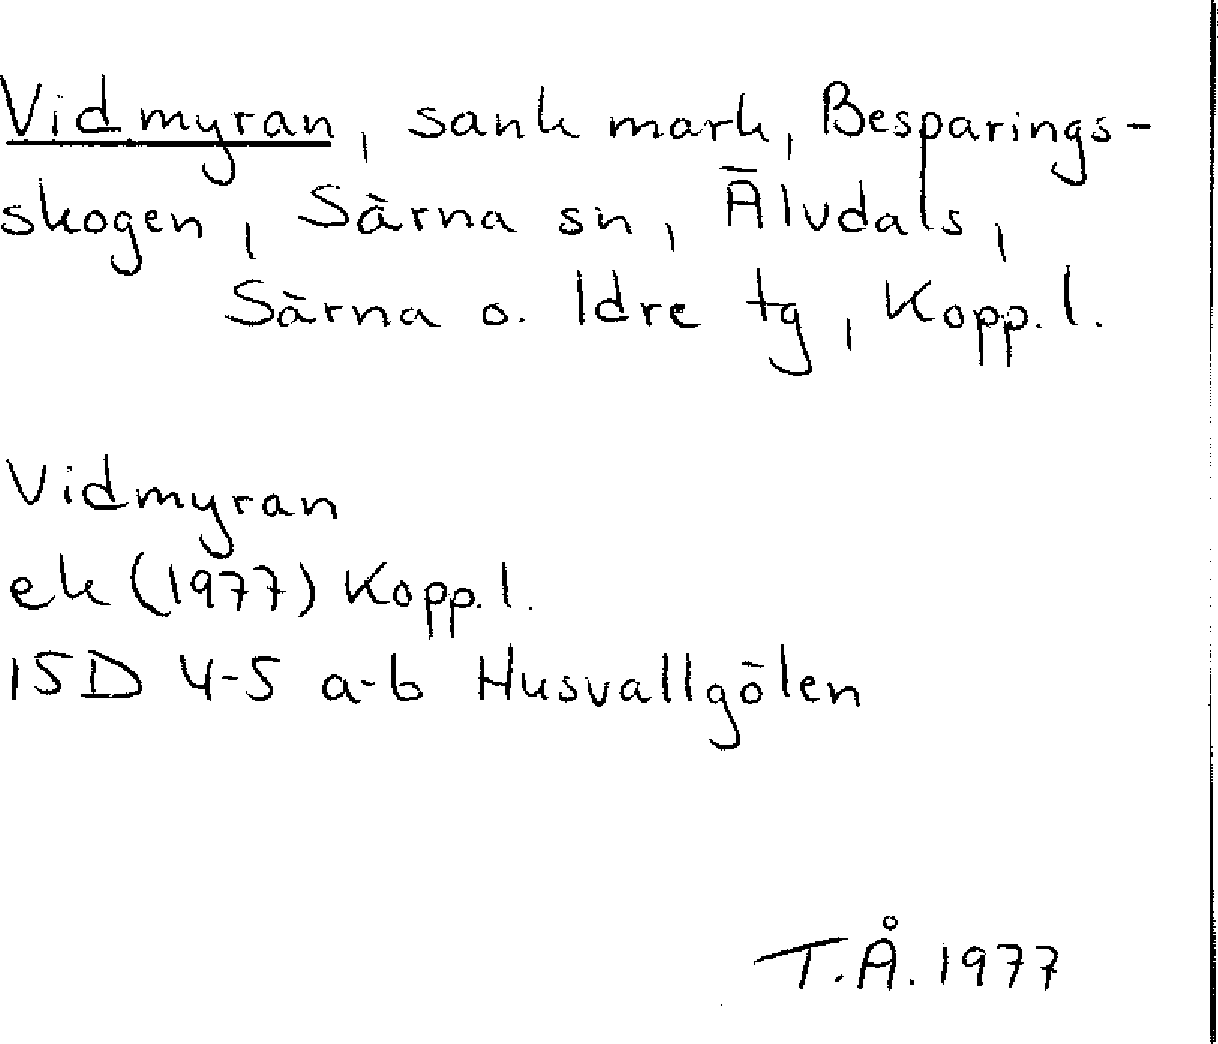 Vidmyran, sank mark, Besparings-
skogen, Särna sn, Älvdals,
Särna o. Idre tg, Kopp. l.
Vidmyran
ek (1977) Kopp. l.
15D 4-5 a-b Husvallgölen
T.Å. 1977